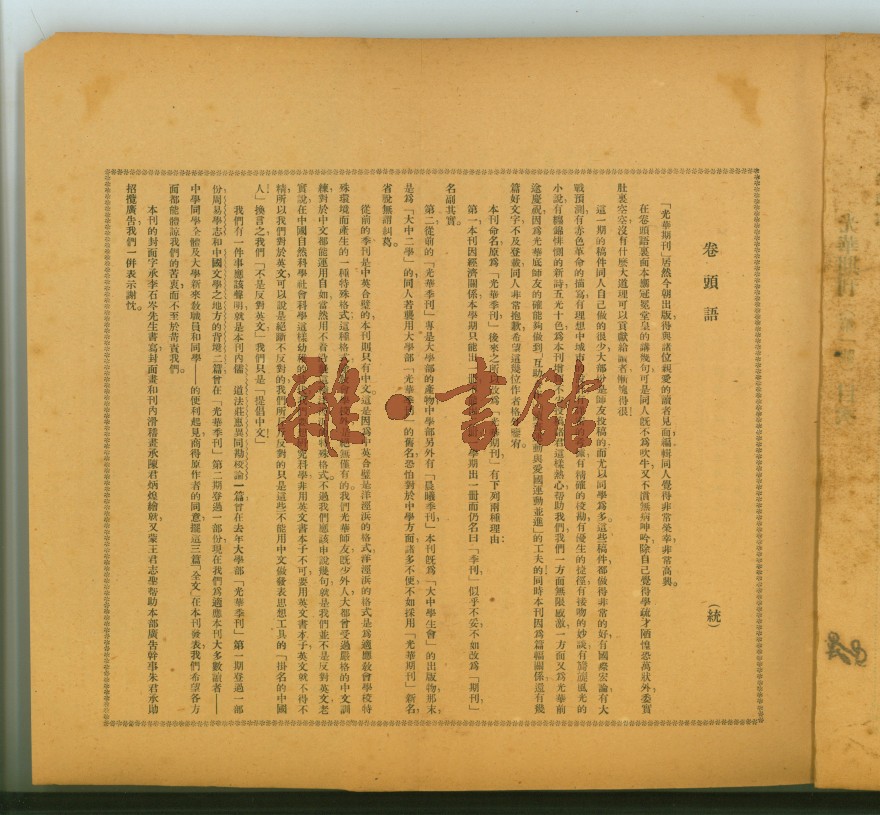 卷頭語
（統）
「光華期刊」居然今朝出版得與諸位親愛的讀者見面編輯同人覺得非常榮幸非常高興。
在卷頭語裏面本應冠冕堂皇的講幾句可是同人既不為吹牛又不慣無病呻吟除自己覺得學疏才陋惶恐萬狀外委實
肚裏空空沒有什麼大道理可以貢獻給讀者慚愧得很！
這一期的稿件同人自己做的很少大部份是師友投稿的而尤以同學為多這些稿件，都做得非常的好有國際宏論有大
戰預測有赤色革命的描寫有理想中城市
有精確的校勘有優生的捷徑有接吻的妙談有旖旎風光的
小說有纏綿悱惻的新詩五光十色，為本刊增
這樣熱心幫助我們，我們一方面無限感激一方面又為光華前
途慶祝因為光華底師友的確能夠做到「互助
動與愛國運動並進」的工夫的同時本刊因為篇幅關係，還有幾
篇好文字不及登載，同人非常抱歉，希望這幾位作者格外鑒宥。
本刊命名原為「光華季刊」後來之所以改為「光華期刊」有下列兩種理由：
第一，本刊因經濟關係，本學期只能出一
學期出一冊而仍名曰「季刊」似乎不妥，不如改為「期刊」
名副其實。
第二，從前的「光華季刊」專是大學部的產物，中學部另外有「晨曦季刊」本刊既為「大中學生會」的出版物，那末，
是為「大中二學」的同人若襲用大學部「光華季刊」的舊名，恐怕對於中學方面諸多不便，不如採用「光華期刊」新名，
省說無謂糾葛。
從前的季刊是中英合璧的，本刊則只有中文。這是因為中英合璧是洋涇浜的格式，洋涇浜的格式是為適應教會學校特
殊環境而產生的一種特殊格式，這種格
絕無僅有的。我們光華師友既少外人，大都曾受過嚴格的中文訓
練，對於中文都能運用自如，當然用不着
特殊格式。不過我們應該申說幾句就是我們並不是反對英文，老
實說在中國自然科學社會科學這樣幼稚的
究科學非用英文書本子不可，要用英文書本子，英文就不得不
精，所以我們對於英文可以說是絕端不反對的，我們所
反對的只是這些不能用中文做發表思想工具的「掛名的中國
人」換言之，我們「不是反對英文」我們只是「提倡中文」
我們有一件事應該聲明，就是本刊內儒道法莊惠異同勘校論一篇，曾在去年大學部「光華季刊」第一期登過一部
份，周易學志和中國文學之地方的背境二篇曾在「光華季刊」第二期登過一部份，現在我們為適應本刊大多數讀者——
中學同學全體及大學新來教職員和同學——的便利起見，商得原作者的同意，擺這三篇「全文」在本刊發表，我們希望各方
面都能體諒我們的苦衷而不至於苛責我們。
本刊的封面字承李石岑先生書寫，封面畫和刊內滑稽畫承陳君炳煌繪就，又蒙王君志聖幫助本部廣告幹事朱君承勛
招攬廣告，我們一併表示謝忱。
雜·書館